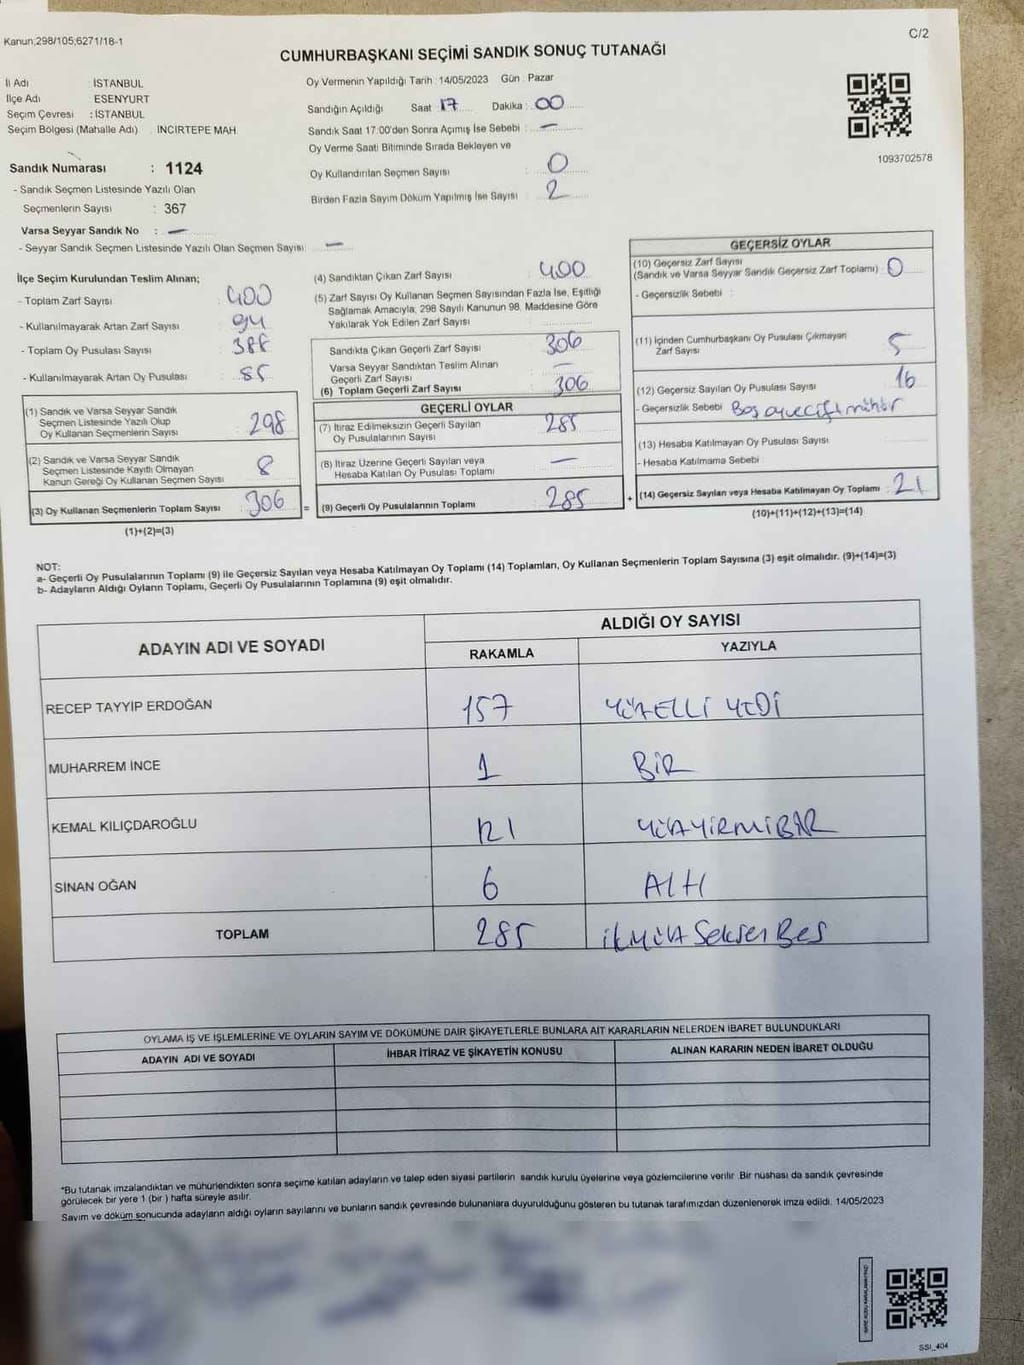 Kanun;298/105;6271/18-1
C/2
CUMHURBAŞKANI SEÇİMİ SANDIK SONUÇ TUTANAĞI
İl Adı : İSTANBUL
İlçe Adı ESENYURT
Seçim Çevresi : İSTANBUL
Seçim Bölgesi (Mahalle Adı) . INCIRTEPE MAH.
Oy Vermenin Yapıldığı Tarih :14/05/2023 Gün : Pazar
Sandığın Açıldığı Saat : 17 Dakika : 00
Sandık Saat 17:00'den Sonra Açımış İse Sebebi : —
Oy Verme Saati Bitiminde Sırada Bekleyen ve
Oy Kullandırılan Seçmen Sayısı : 0
Birden Fazla Sayım Döküm Yapılmış İse Sayısı : 2
1093702578
Sandık Numarası : 1124
- Sandık Seçmen Listesinde Yazılı Olan
Seçmenlerin Sayısı : 367
Varsa Seyyar Sandık No : —
- Seyyar Sandık Seçmen Listesinde Yazılı Olan Seçmen Sayısı : —
İlçe Seçim Kurulundan Teslim Alınan;
- Toplam Zarf Sayısı : 400
- Kullanılmayarak Artan Zarf Sayısı : 94
- Toplam Oy Pusulası Sayısı : 388
- Kullanılmayarak Artan Oy Pusulası : 85
(1) Sandık ve Varsa Seyyar Sandık
Seçmen Listesinde Yazılı Olup
Oy Kullanan Seçmenlerin Sayısı : 298
(2) Sandık ve Varsa Seyyar Sandık
Seçmen Listesinde Kayıtlı Olmayan
Kanun Gereği Oy Kullanan Seçmen Sayısı : 8
(3) Oy Kullanan Seçmenlerin Toplam Sayısı : 306
(1)+(2)=(3)
(4) Sandıktan Çıkan Zarf Sayısı : 400
(5) Zarf Sayısı Oy Kullanan Seçmen Sayısından Fazla İse, Eşitliği
Sağlamak Amacıyla, 298 Sayılı Kanunun 98. Maddesine Göre
Yakılarak Yok Edilen Zarf Sayısı
Sandıkta Çıkan Geçerli Zarf Sayısı : 306
Varsa Seyyar Sandıktan Teslim Alınan
Geçerli Zarf Sayısı : —
(6) Toplam Geçerli Zarf Sayısı : 306
GEÇERLİ OYLAR
(7) İtiraz Edilmeksizin Geçerli Sayılan
Oy Pusulalarının Sayısı : 285
(8) İtiraz Üzerine Geçerli Sayılan veya
Hesaba Katılan Oy Pusulası Toplamı : —
= (9) Geçerli Oy Pusulalarının Toplamı : 285
GEÇERSİZ OYLAR
(10) Geçersiz Zarf Sayısı
(Sandık ve Varsa Seyyar Sandık Geçersiz Zarf Toplamı) : 0
- Geçersizlik Sebebi :
(11) İçinden Cumhurbaşkanı Oy Pusulası Çıkmayan
Zarf Sayısı : 5
(12) Geçersiz Sayılan Oy Pusulası Sayısı : 16
- Geçersizlik Sebebi : Boş oy ve çift mühür
(13) Hesaba Katılmayan Oy Pusulası Sayısı
- Hesaba Katılmama Sebebi
+ (14) Geçersiz Sayılan veya Hesaba Katılmayan Oy Toplamı : 21
(10)+(11)+(12)+(13)=(14)
NOT:
a- Geçerli Oy Pusulalarının Toplamı (9) ile Geçersiz Sayılan veya Hesaba Katılmayan Oy Toplamı (14) Toplamları, Oy Kullanan Seçmenlerin Toplam Sayısına (3) eşit olmalıdır. (9)+(14)=(3)
b- Adayların Aldığı Oyların Toplamı, Geçerli Oy Pusulalarının Toplamına (9) eşit olmalıdır.
ADAYIN ADI VE SOYADI
ALDIĞI OY SAYISI
RAKAMLA YAZIYLA
RECEP TAYYİP ERDOĞAN 157 YÜZELLİ YEDİ
MUHARREM İNCE 1 BİR
KEMAL KILIÇDAROĞLU 121 YÜZYİRMİBİR
SİNAN OĞAN 6 ALTI
TOPLAM 285 İKİYÜZ Seksen Beş
OYLAMA İŞ VE İŞLEMLERİNE VE OYLARIN SAYIM VE DÖKÜMÜNE DAİR ŞİKAYETLERLE BUNLARA AİT KARARLARIN NELERDEN İBARET BULUNDUKLARI
ADAYIN ADI VE SOYADI İHBAR İTİRAZ VE ŞİKAYETİN KONUSU ALINAN KARARIN NEDEN İBARET OLDUĞU
*Bu tutanak imzalandıktan ve mühürlendikten sonra seçime katılan adayların ve talep eden siyasi partilerin sandık kurulu üyelerine veya gözlemcilerine verilir. Bir nüshası da sandık çevresinde
görülecek bir yere 1 (bir ) hafta süreyle asılır.
Sayım ve döküm sonucunda adayların aldığı oyların sayılarını ve bunların sandık çevresinde bulunanlara duyurulduğunu gösteren bu tutanak tarafımızdan düzenlenerek imza edildi. 14/05/2023
SSI_404